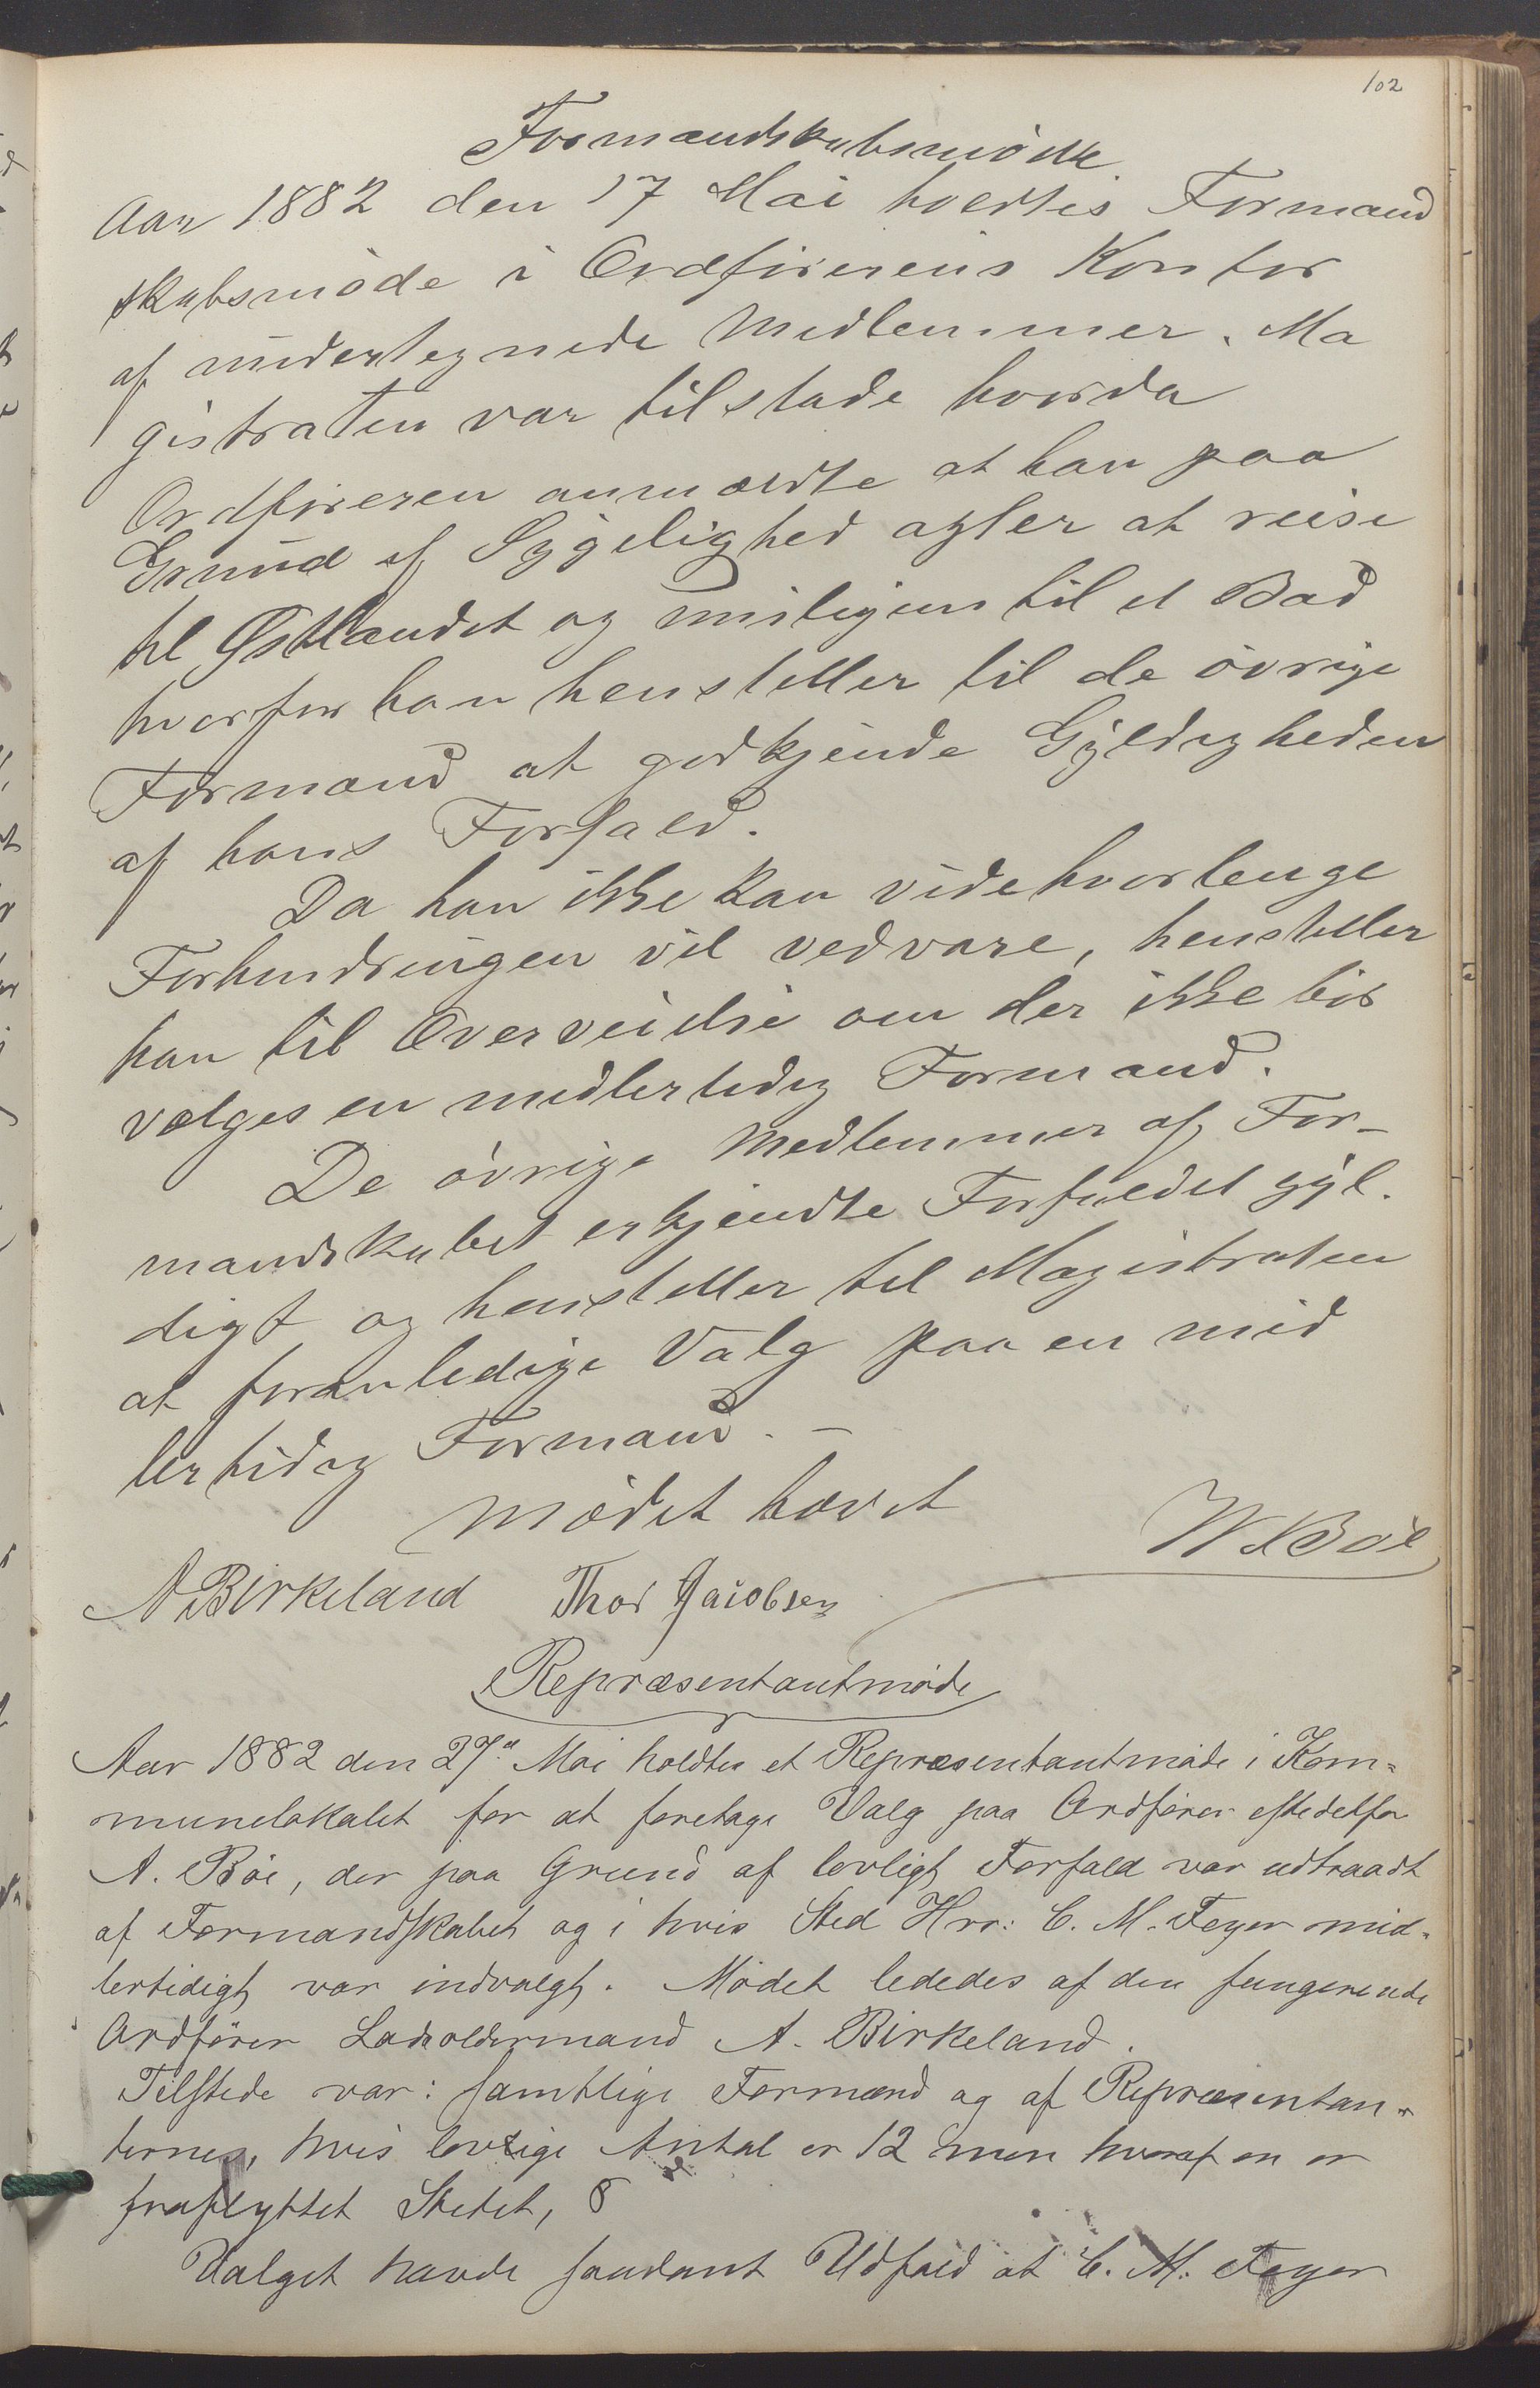 102
Formandskabsmöde
Aar 1882 den 17 Mai holdtes Formand
skabsmöde i Ordförerens Kontor
af undertegnede Medlemmer. Ma
gistraten var tilstæde hvorda
Ordföreren anmældte at han paa
Grund af Sygelighed agter at reise
til Østlandet og muligens til et Bad
hvorfor han henstiller til de övrige
Formænd at godkjende Gyldigheden
af hans Forfald.
Da han ikke kan vide hvorlenge
Forhindringen vil vedvare, henstiller
han til Overveielse om der ikke bör
vælges en midlertidig Formand.
De övrige Medlemmer af For-
mandskabet erkjendte Forfaldet gyl-
digt og henstiller til Magistraten
at foranledige Valg paa en mid
lertidig Formand. –
Mödet hævet
A Böe
A Birkeland Thor Jacobsen
Repræsentantmöde
Aar 1882 den 27de Mai holdtes et Repræsentantmöde i Kom-
munelokalet for at foretage Valg paa Ordförer istedetfor
A. Böe, der paa Grund af lovligt Forfald var udtraadt
af Formandskabet og i hvis Sted Hrr: C. M. Feyer mid-
lertidigt var indvalgt. Mödet lededes af den fungerende
Ordförer Ladeoldermand A. Birkeland.
Tilstede var: samtlige Formænd og af Repræsentan-
ternes, hvis lovlige Antal er 12 men hvoraf en er
fraflyttet Stedet, 8
Valget havde saadant Udfald at C. M. Feyer